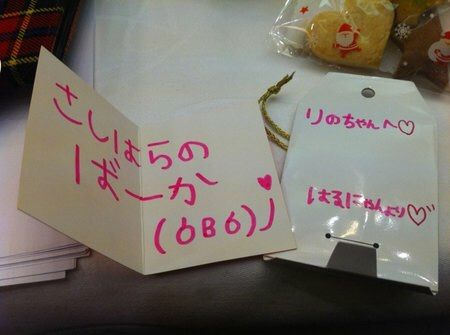 さしはらの
ばーか
♥
(6B6)ノ
りのちゃんへ♡
はるにゃんより♡